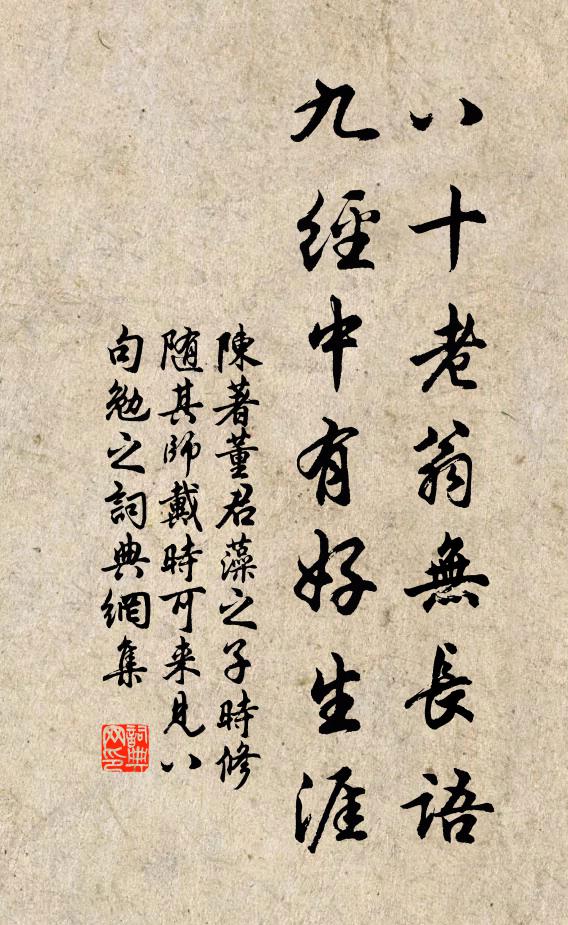 八十老翁無長語
九經中有好生涯
陳著董君藻之子時修
随其師戴時可来見八
句勉之詞典網集
詞典
网印